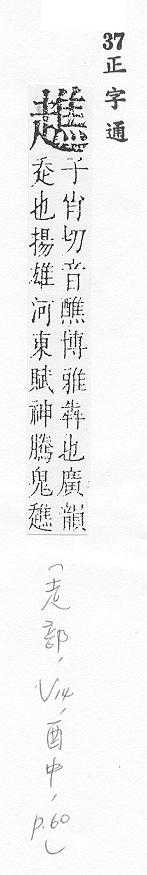 37正字通
趭
子肖切音醮博雅犇也廣韻
走也揚雄河東賦神騰鬼趭
(走部,V14,酉中,p.60)